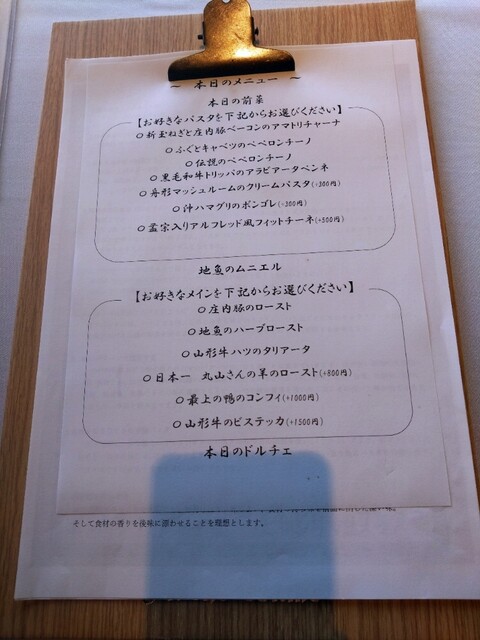 ～ 本日のメニュー ～
本日の前菜
【お好きなパスタを下記からお選びください】
○ 新玉ねぎと庄内豚ベーコンのアマトリチャーナ
○ ふぐとキャベツのペペロンチーノ
○ 伝説のペペロンチーノ
○ 黒毛和牛トリッパのアラビアータペンネ
○ 舟形マッシュルームのクリームパスタ(+300円)
○ 沖ハマグリのボンゴレ(+300円)
○ 孟宗入りアルフレッド風フィットチーネ(+500円)
地魚のムニエル
【お好きなメインを下記からお選びください】
○ 庄内豚のロースト
○ 地魚のハーブロースト
○ 山形牛ハツのタリアータ
○ 日本一 丸山さんの羊のロースト(+800円)
○ 最上の鴨のコンフィ(+1000円)
○ 山形牛のビステッカ(+1500円)
本日のドルチェ
そして食材の香りを後味に漂わせることを理想とします。